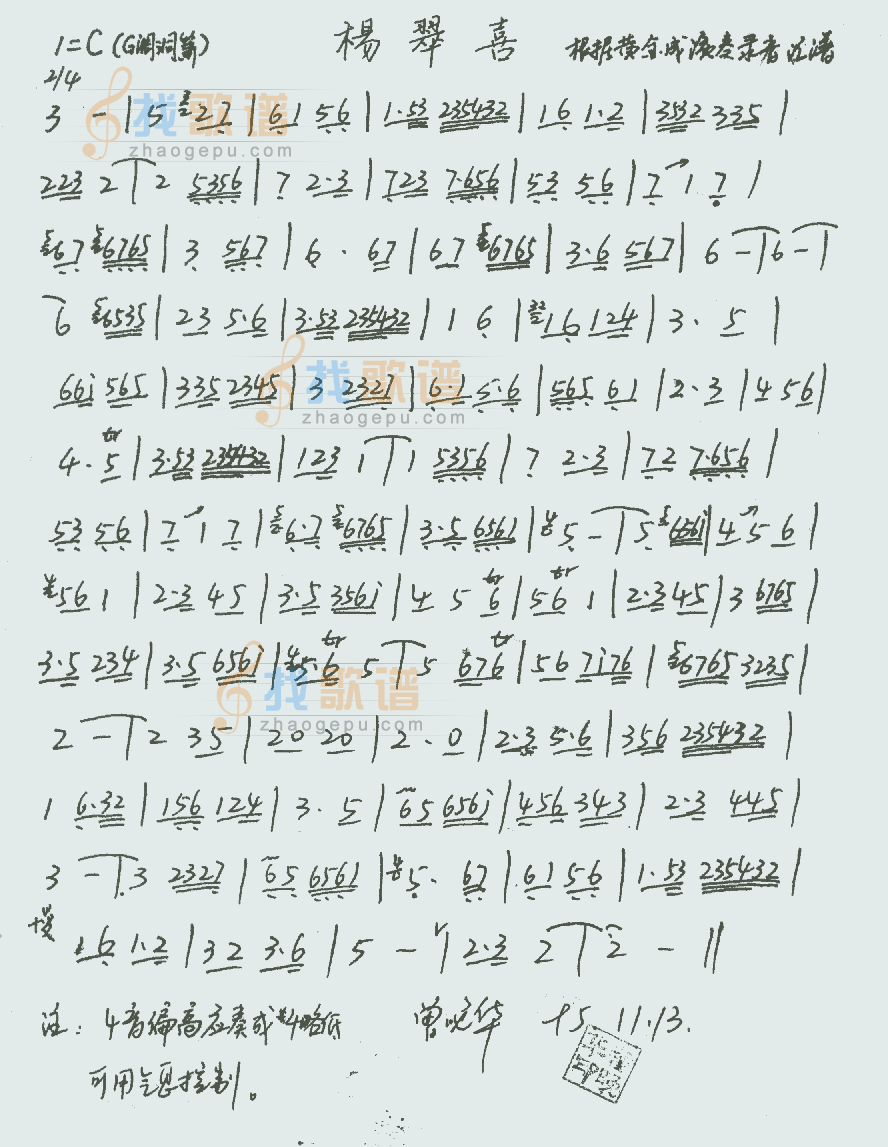 1=C (G洞洞箫) 楊翠喜 根据黄金成演奏录音记谱
2/4
3 - | 5 3 27 | 61 56 | 1·53 235432 | 16 1·2 | 3532 335 |
找歌谱
zhaogepu.com
223 2 | 2 5356 | 7 2·3 | 723 7·656 | 53 56 | 7 1 7 |
5 67 5 6765 | 3 567 | 6 · 67 | 67 5 6765 | 3·6 567 | 6 - | 6 - |
6 5 6535 | 23 5·6 | 3·53 235432 | 1 6 | 32 16 124 | 3 · 5 |
找歌谱
zhaogepu.com
66i 565 | 335 2345 | 3 2327 | 6·1 5·6 | 565 61 | 2·3 | 4 56 |
4 · tr 5 | 3·53 235432 | 123 1 | 1 5356 | 7 2·3 | 72 7·656 |
53 56 | 7 1 7 | 5 6·7 5 6765 | 3·5 6561 | 4 5 - | 5 5 656i | 4 5 6 |
4 56 1 | 2·3 45 | 3·5 356i | 4 5 tr 6 | 5 tr 6 1 | 2·3 45 | 3 6765 |
3·5 234 | 3·5 656i | 4 5·6 tr 5 | 5 676 tr | 56 7i76 | 5 6765 3235 |
找歌谱
zhaogepu.com
2 - | 2 35 | 20 20 | 2·0 | 2·3 5·6 | 356 235432 |
1 6·32 | 156 124 | 3 · 5 | 65 656i | 456 343 | 2·3 445 |
3 - | 3 2327 | 65 6561 | 5 · 67 | 61 56 | 1·53 235432 |
慢
16 1·2 | 32 3·6 | 5 - | 2·3 2 | 2 - ||
注: 4音偏高应奏成 4略低 15 11.13.
可用气息控制。